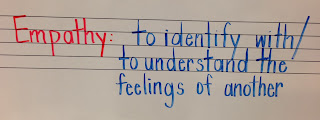 Empathy: to identify with/
to understand the
feelings of another